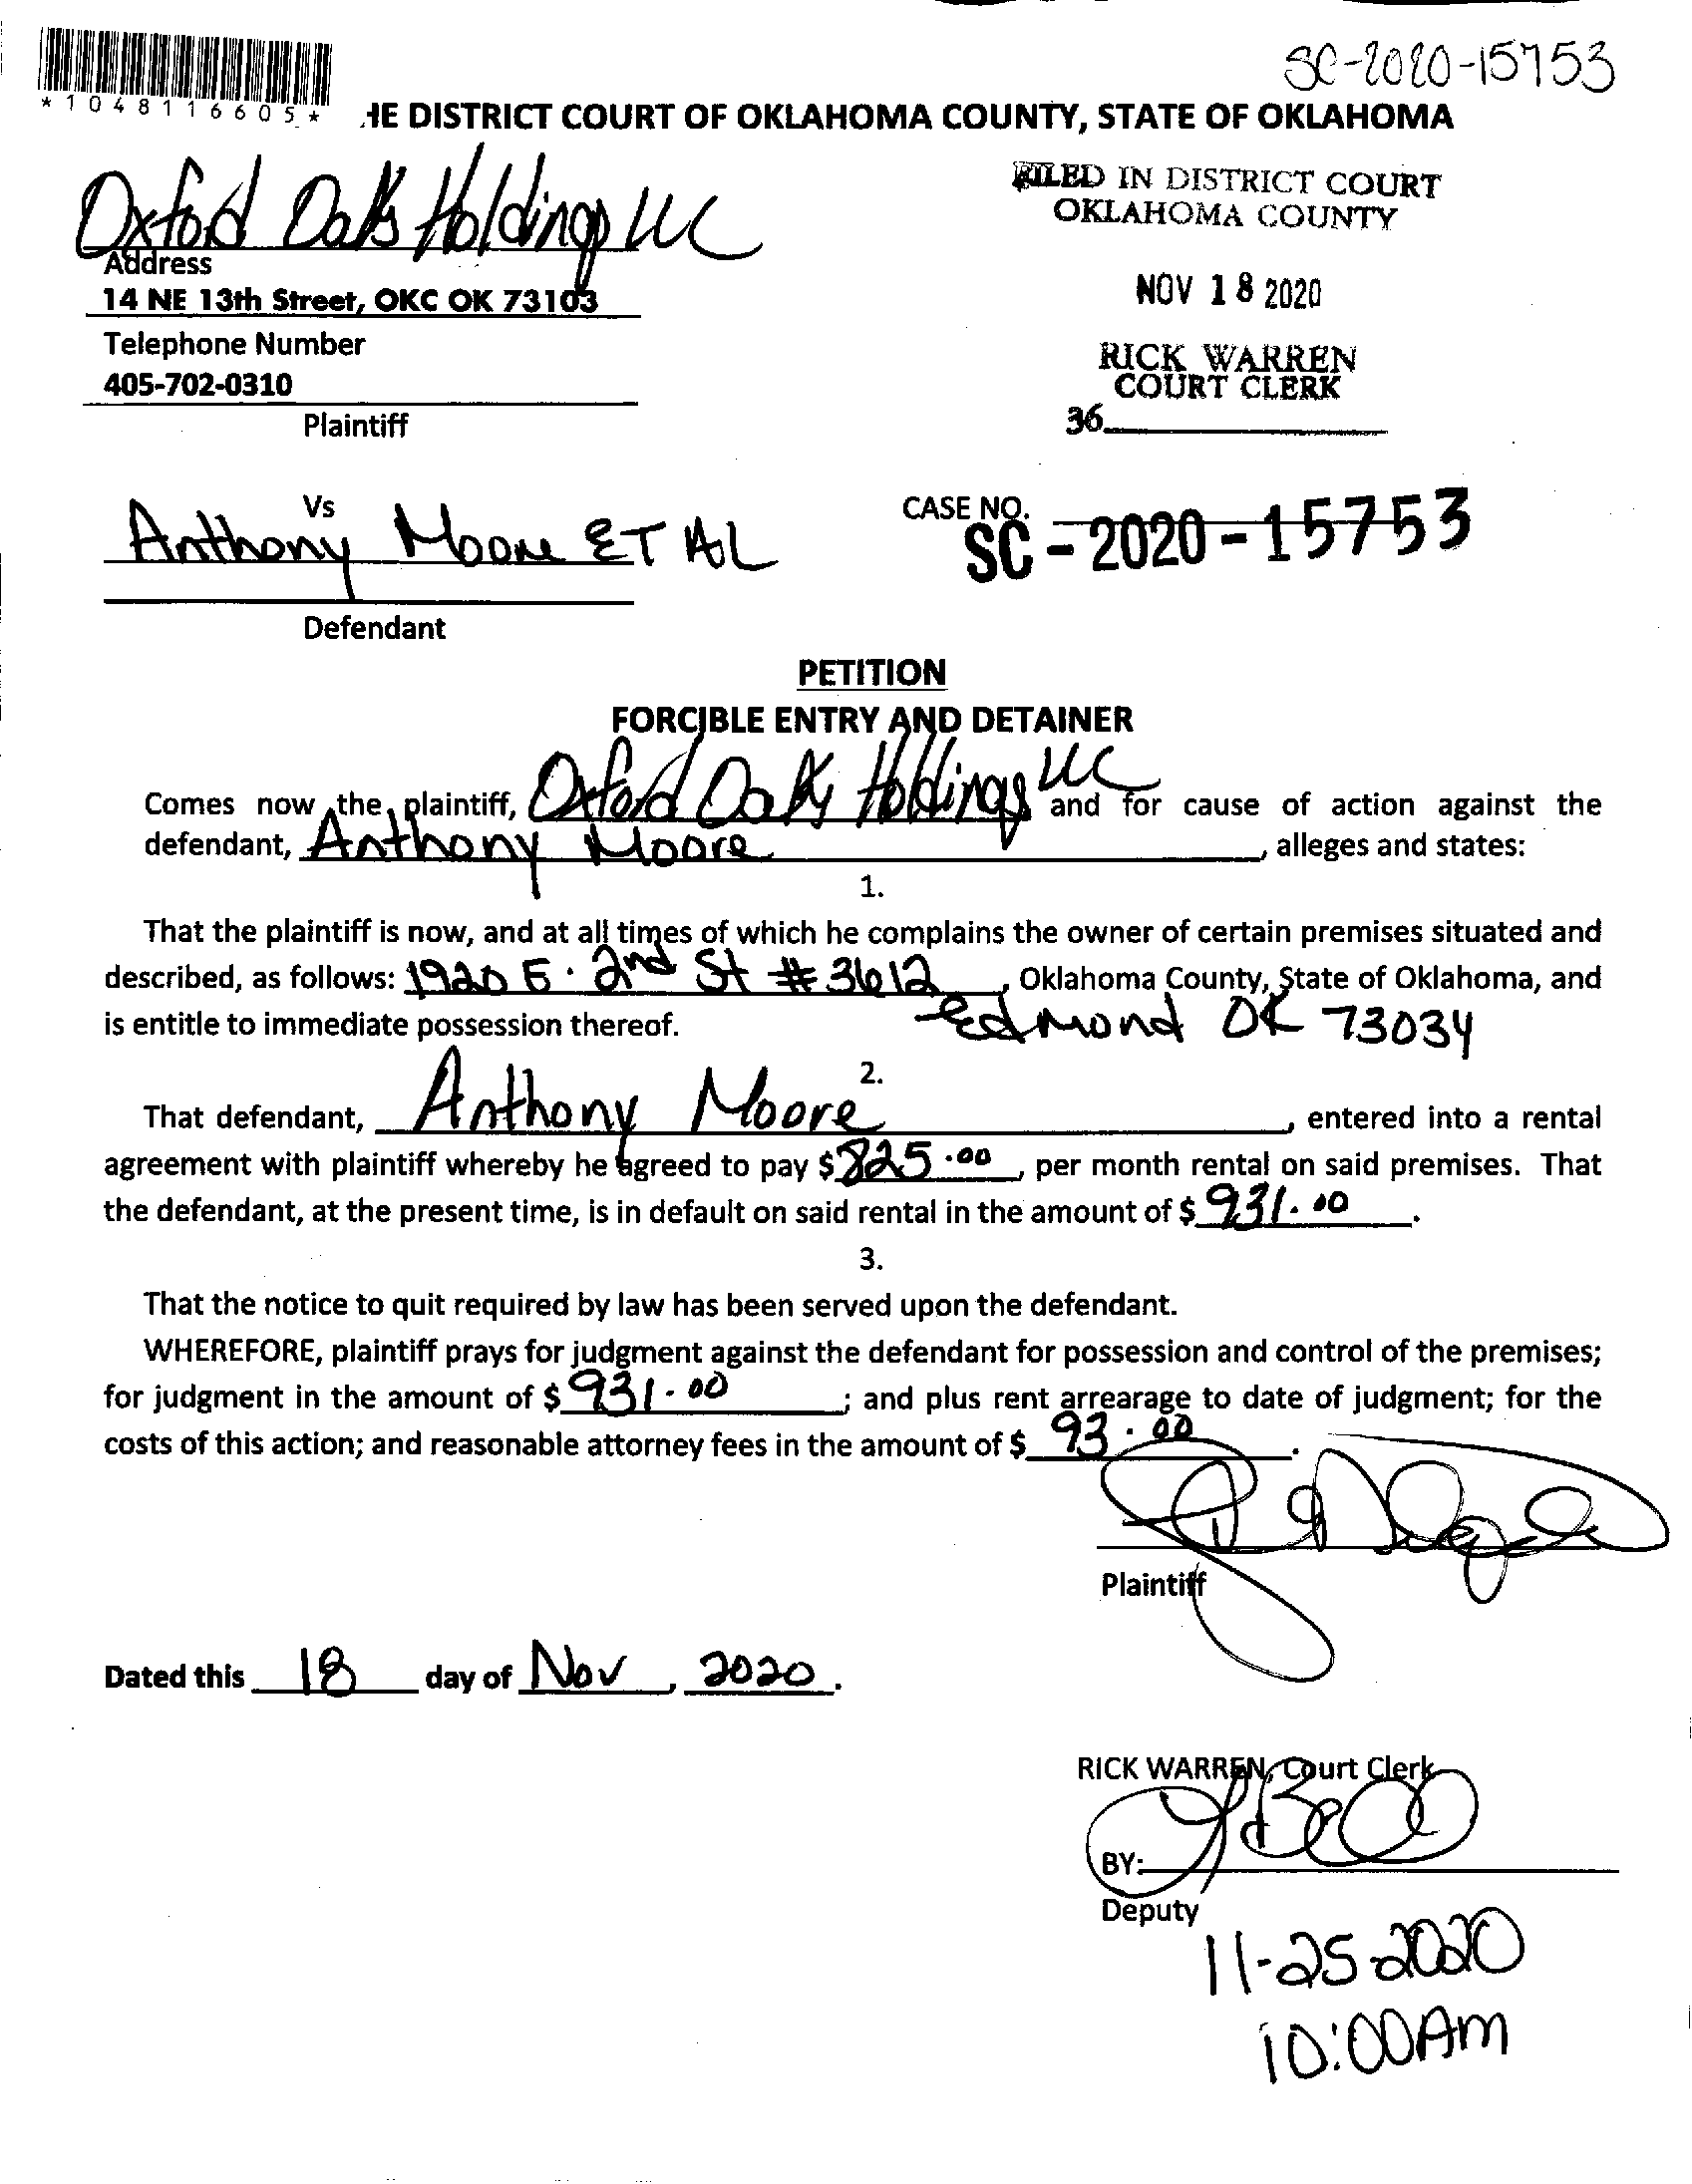 SC-2020-15753
*1048116605*
HE DISTRICT COURT OF OKLAHOMA COUNTY, STATE OF OKLAHOMA
Oxford Oaks Holdings LLC
Address
14 NE 13th Street, OKC OK 73103
Telephone Number
405-702-0310
Plaintiff
FILED IN DISTRICT COURT
OKLAHOMA COUNTY
NOV 18 2020
RICK WARREN
COURT CLERK
36
Vs
Anthony Moore ET AL
Defendant
CASE NO.
SC-2020-15753
PETITION
FORCIBLE ENTRY AND DETAINER
Comes now the plaintiff, Oxford Oaks Holdings LLC and for cause of action against the
defendant, Anthony Moore, alleges and states:
1.
That the plaintiff is now, and at all times of which he complains the owner of certain premises situated and
described, as follows: 1920 E. 2nd St # 3612, Oklahoma County, State of Oklahoma, and
is entitle to immediate possession thereof. Edmond OK 73034
2.
That defendant, Anthony Moore, entered into a rental
agreement with plaintiff whereby he agreed to pay $825.00, per month rental on said premises. That
the defendant, at the present time, is in default on said rental in the amount of $931.00.
3.
That the notice to quit required by law has been served upon the defendant.
WHEREFORE, plaintiff prays for judgment against the defendant for possession and control of the premises;
for judgment in the amount of $931.00; and plus rent arrearage to date of judgment; for the
costs of this action; and reasonable attorney fees in the amount of $93.00.
Plaintiff
Dated this 18 day of Nov, 2020.
RICK WARREN, Court Clerk
BY:
Deputy
11-25-2020
10:00AM